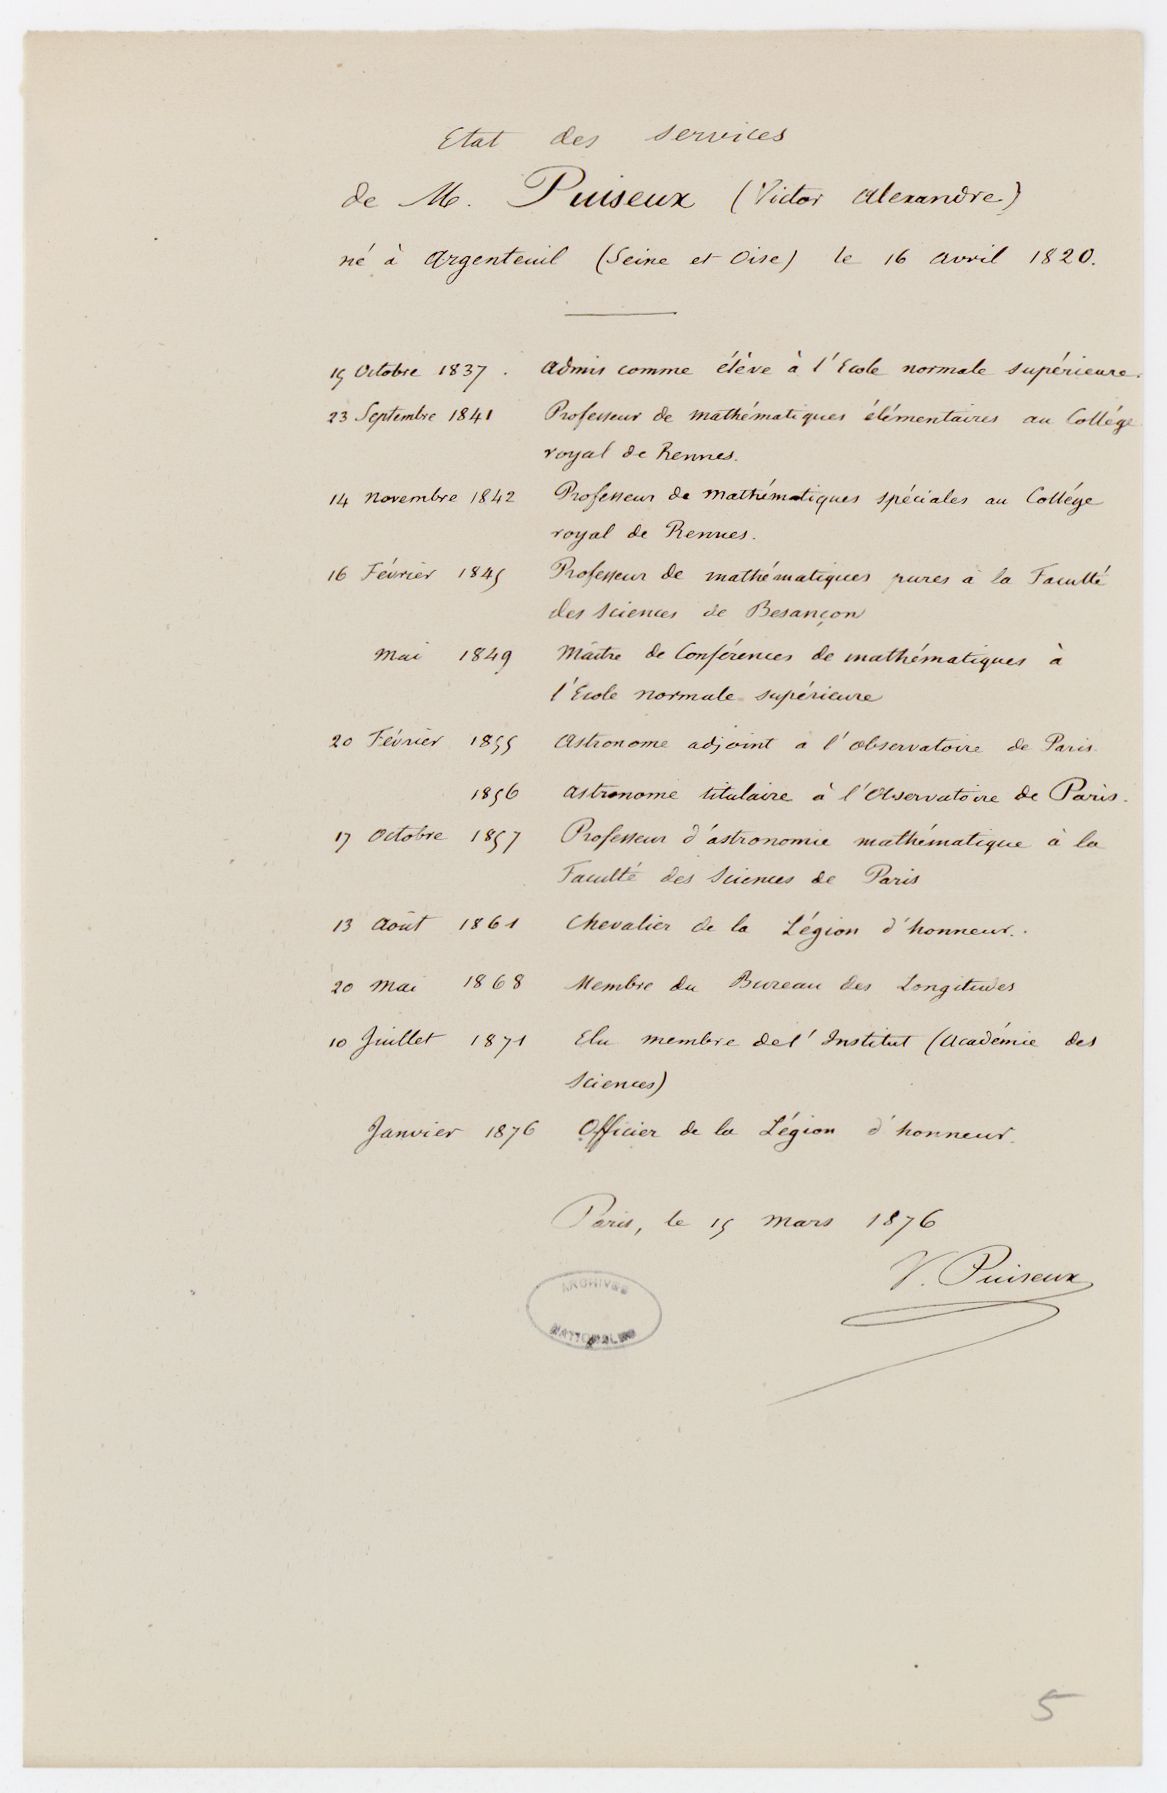 Etat des services
de M. Puiseux (Victor Alexandre)
né à Argenteuil (Seine et Oise) le 16 avril 1820.
15 Octobre 1837. Admis comme élève à l'Ecole normale supérieure.
23 Septembre 1841 Professeur de mathématiques élémentaires au Collége
royal de Rennes.
14 novembre 1842 Professeur de mathématiques spéciales au Collége
royal de Rennes.
16 Février 1845 Professeur de mathématiques pures à la Faculté
des Sciences de Besançon
mai 1849 Maître de Conférences de mathématiques à
l'Ecole normale supérieure
20 Février 1855 Astronome adjoint à l'observatoire de Paris.
1856 Astronome titulaire à l'Observatoire de Paris.
17 octobre 1857 Professeur d'astronomie mathématique à la
Faculté des Sciences de Paris
13 août 1861 Chevalier de la Légion d'honneur.
20 mai 1868 Membre du Bureau des Longitudes
10 Juillet 1871 Elu membre de l'Institut (Académie des
Sciences)
Janvier 1876 Officier de la Légion d'honneur.
Paris, le 15 mars 1876
V. Puiseux
ARCHIVES
NATIONALES
5